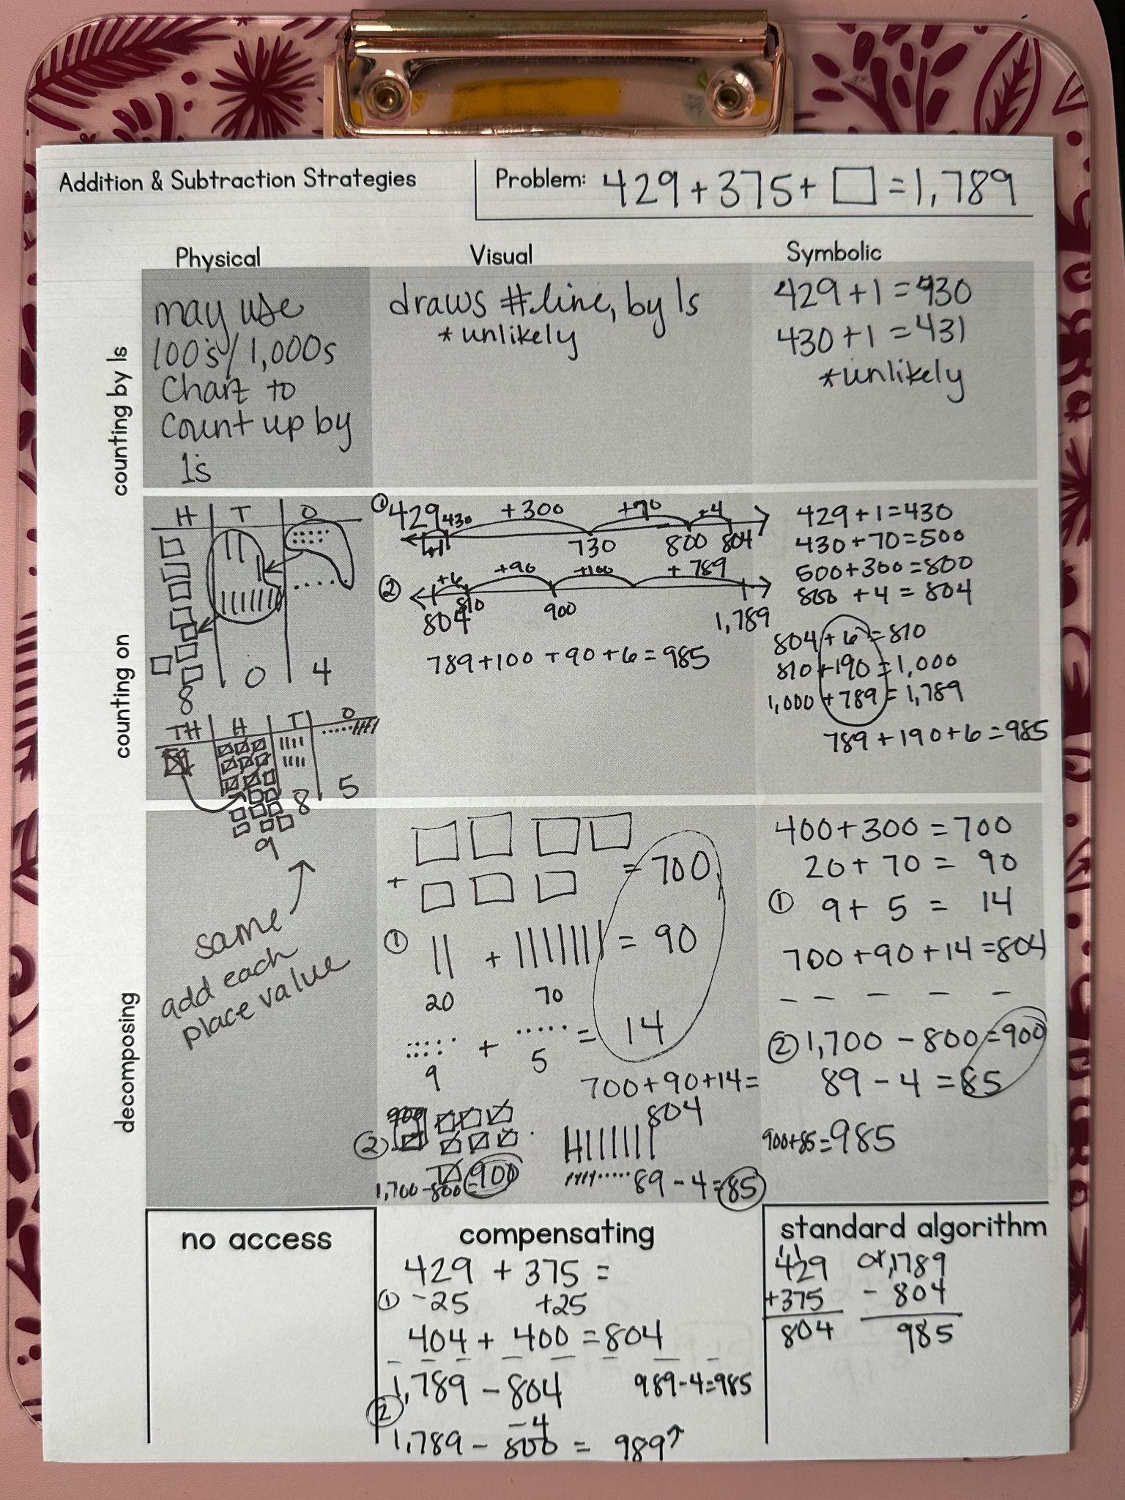 Addition & Subtraction Strategies
Problem: 429+375+□=1,789
Physical
Visual
Symbolic
counting by 1s
may use
100's/1,000s
Chart to
Count up by
1s
draws #line, by 1s
*unlikely
429+1=430
430+1=431
*unlikely
counting on
H T O
8 0 4
TH H T O
9 8 5
① 429 430 +300 +70 +4
730 800 804
② +6 +90 +100 +789
804 810 900 1,789
789+100+90+6=985
429+1=430
430+70=500
500+300=800
800 +4=804
804+6=810
810+190=1,000
1,000+789=1,789
789+190+6=985
decomposing
same
add each
place value
+ = 700
① + = 90
20 70
+ = 14
9 5
700+90+14=
804
②
900
1,700-800=900
89-4=85
400+300=700
20+70=90
① 9+5=14
700+90+14=804
② 1,700-800=900
89-4=85
900+85=985
no access
compensating
429+375=
① -25 +25
404+400=804
1,789-804
989-4=985
②
-4
1,789-800=989↑
standard algorithm
11
429
+375
804
or 1,789
- 804
985